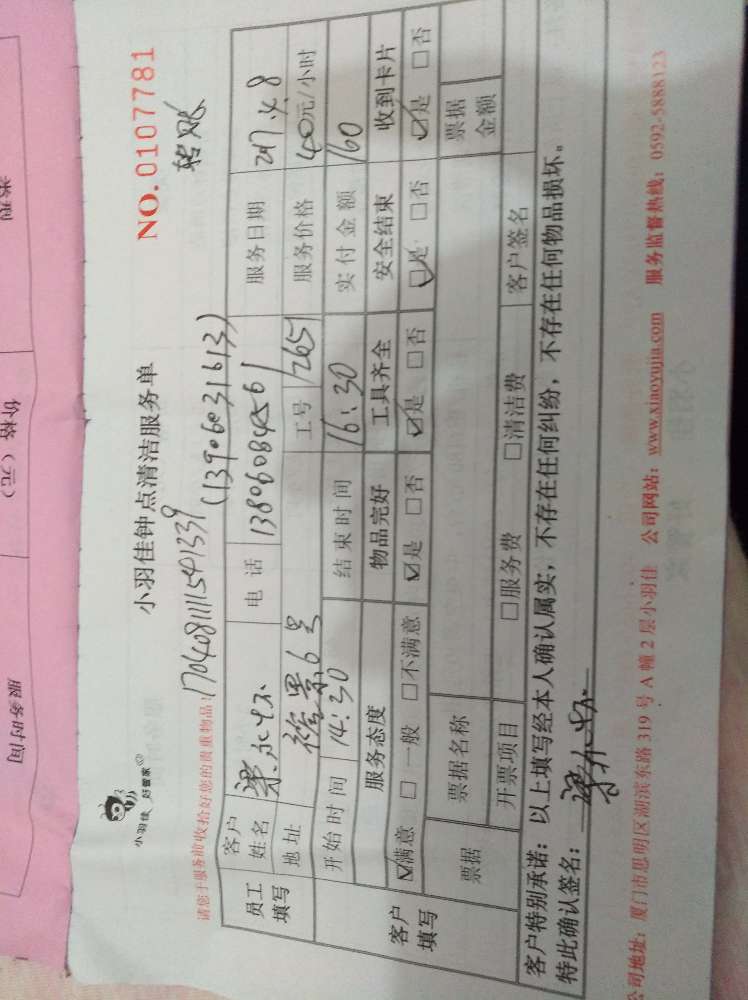 类型
价格（元）
服务时间
小羽佳 好管家
小羽佳钟点清洁服务单
NO.0107781
转账
请您于服务前收拾好您的贵重物品！
170408111541339
(13906031613)
员工填写 客户姓名 电话 13806084561 服务日期 2017.4.8
地址 6号 工号 1265 服务价格 40元/小时
开始时间 14:30 结束时间 16:30 实付金额 160
客户填写 服务态度 物品完好 工具齐全 安全结束 收到卡片
☑满意 □一般 □不满意 ☑是 □否 ☑是 □否 ☑是 □否 ☑是 □否
票据 票据名称 票据金额
开票项目 □服务费 □清洁费 客户签名
客户特别承诺：以上填写经本人确认属实，不存在任何纠纷，不存在任何物品损坏。
特此确认签名：
公司地址：厦门市思明区湖滨东路319号A幢2层小羽佳 公司网站：www.xiaoyujia.com 服务监督热线：0592-5888123